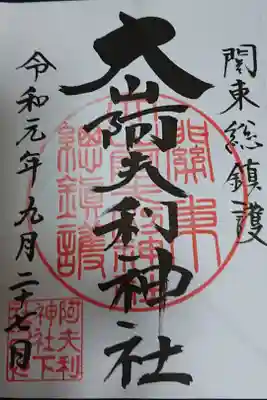 関東総鎮護
大山阿夫利神社
令和元年九月二十七日
關東
總鎮護
阿夫利
神社下